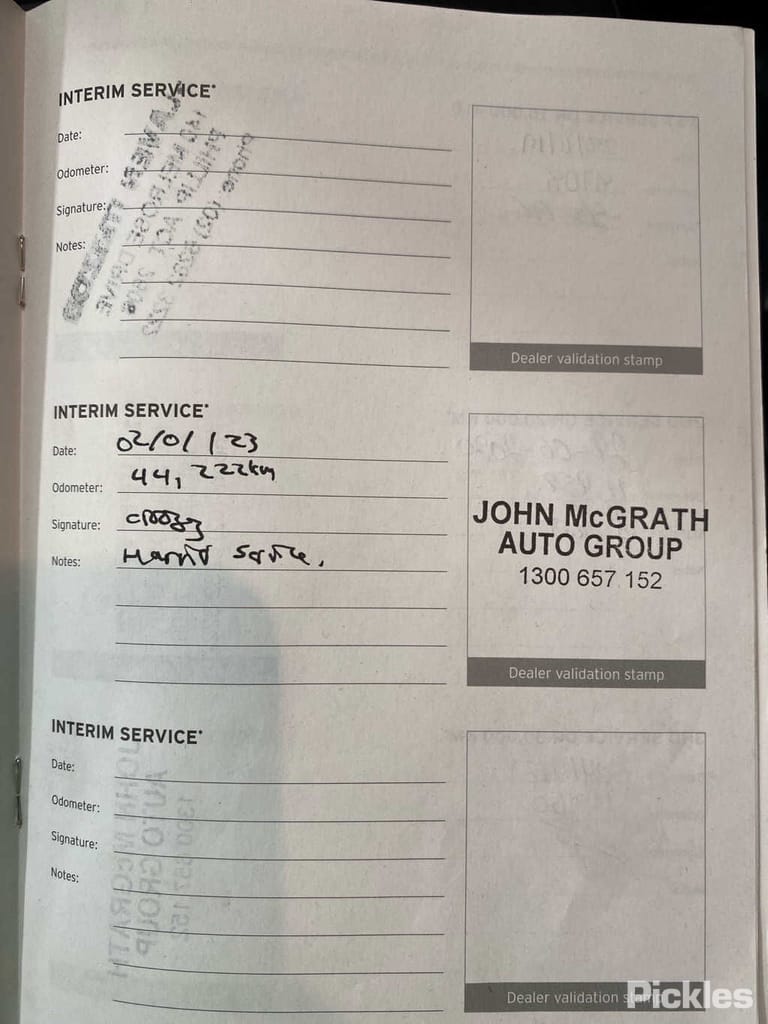 INTERIM SERVICE*
Date:
Odometer:
Signature:
Notes:
Dealer validation stamp
INTERIM SERVICE*
Date: 02/01/23
Odometer: 44,222km
Signature:
Notes:
JOHN McGRATH
AUTO GROUP
1300 657 152
Dealer validation stamp
INTERIM SERVICE*
Date:
Odometer:
Signature:
Notes:
Dealer validation stamp
Pickles